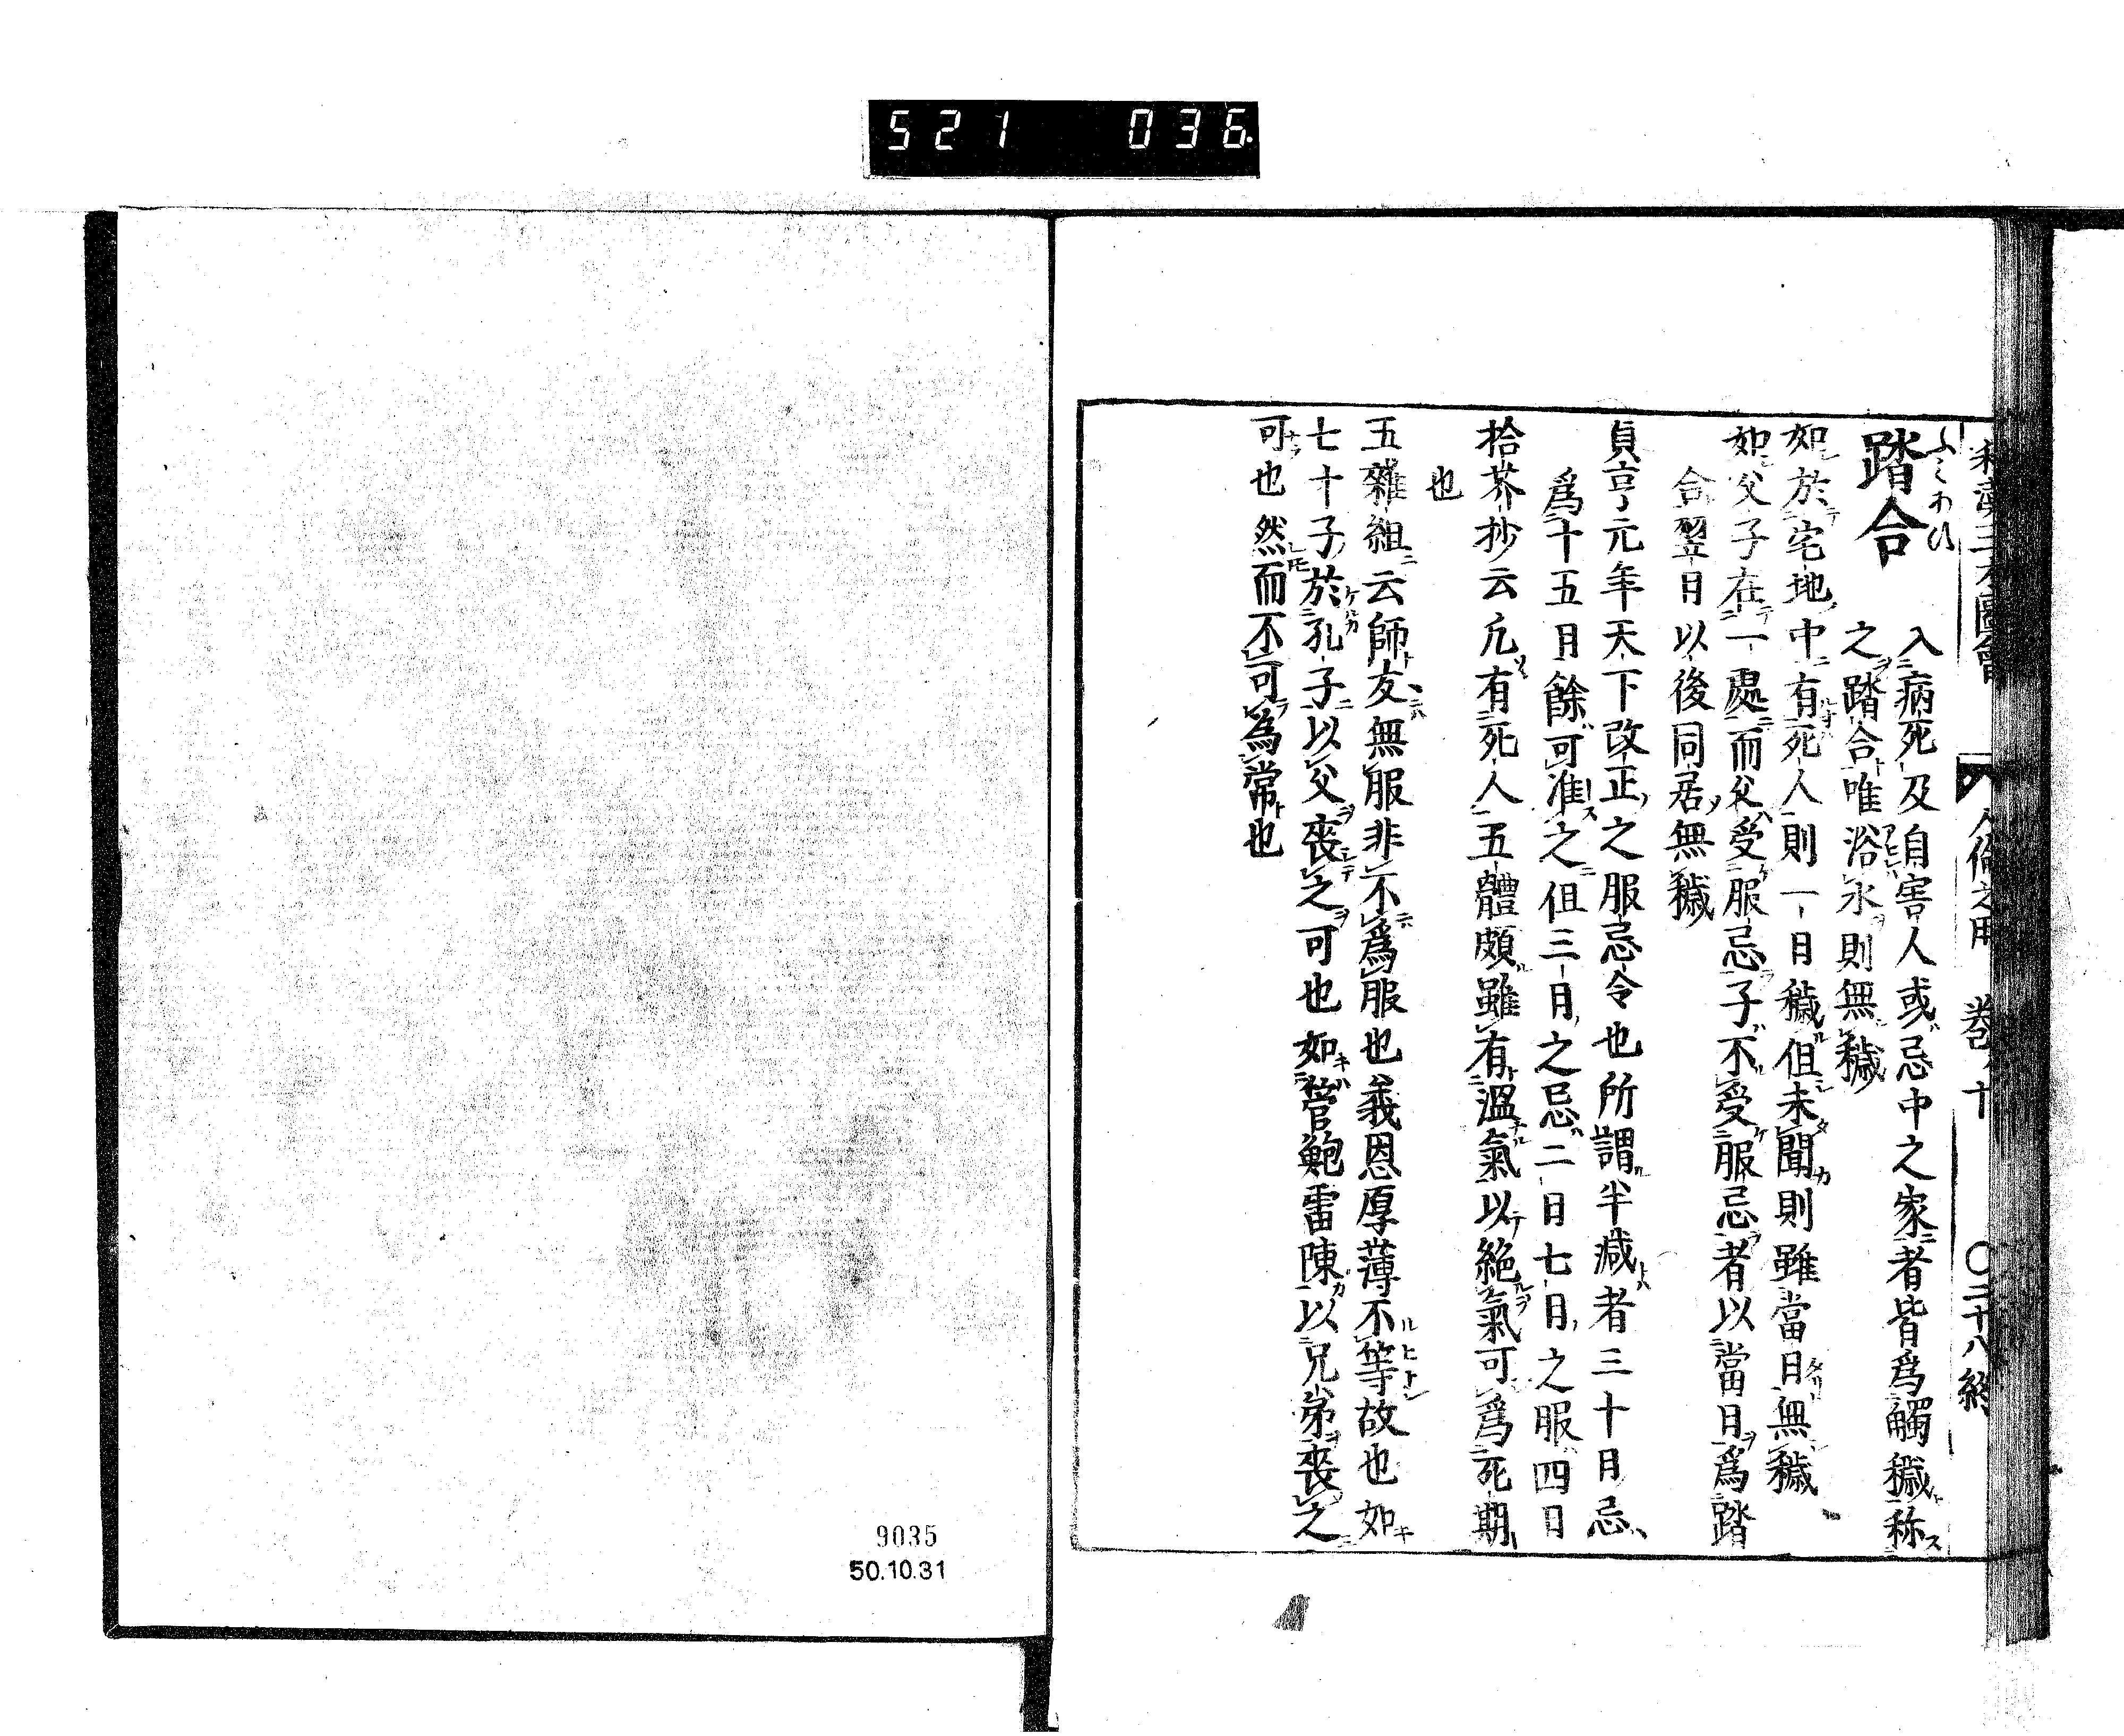 521 036
和漢三才圖會 人倫之用 巻ノ十 〇二十八終
ふみあひ
踏合
入病死及自害人或忌中之家者皆爲觸穢称
之踏合唯浴水則無穢
如於宅地中有死人則一日穢但未聞則雖當日無穢
如父子在一處而父受服忌子不受服忌者以當日爲踏
合翌日以後同居無穢
貞亨元年天下改正之服忌令也所謂半减者三十日忌
爲十五日餘可准之但三日之忌二日七日之服四日
也
拾芥抄云凢有死人五體頗雖有溫氣以絶氣可爲死期
五雜組云師友無服非不爲服也義恩厚薄不等故也如
七十子於孔子以父喪之可也如管鮑雷陳以兄弟喪之
可也然而不可為常也
9035
50.10.31